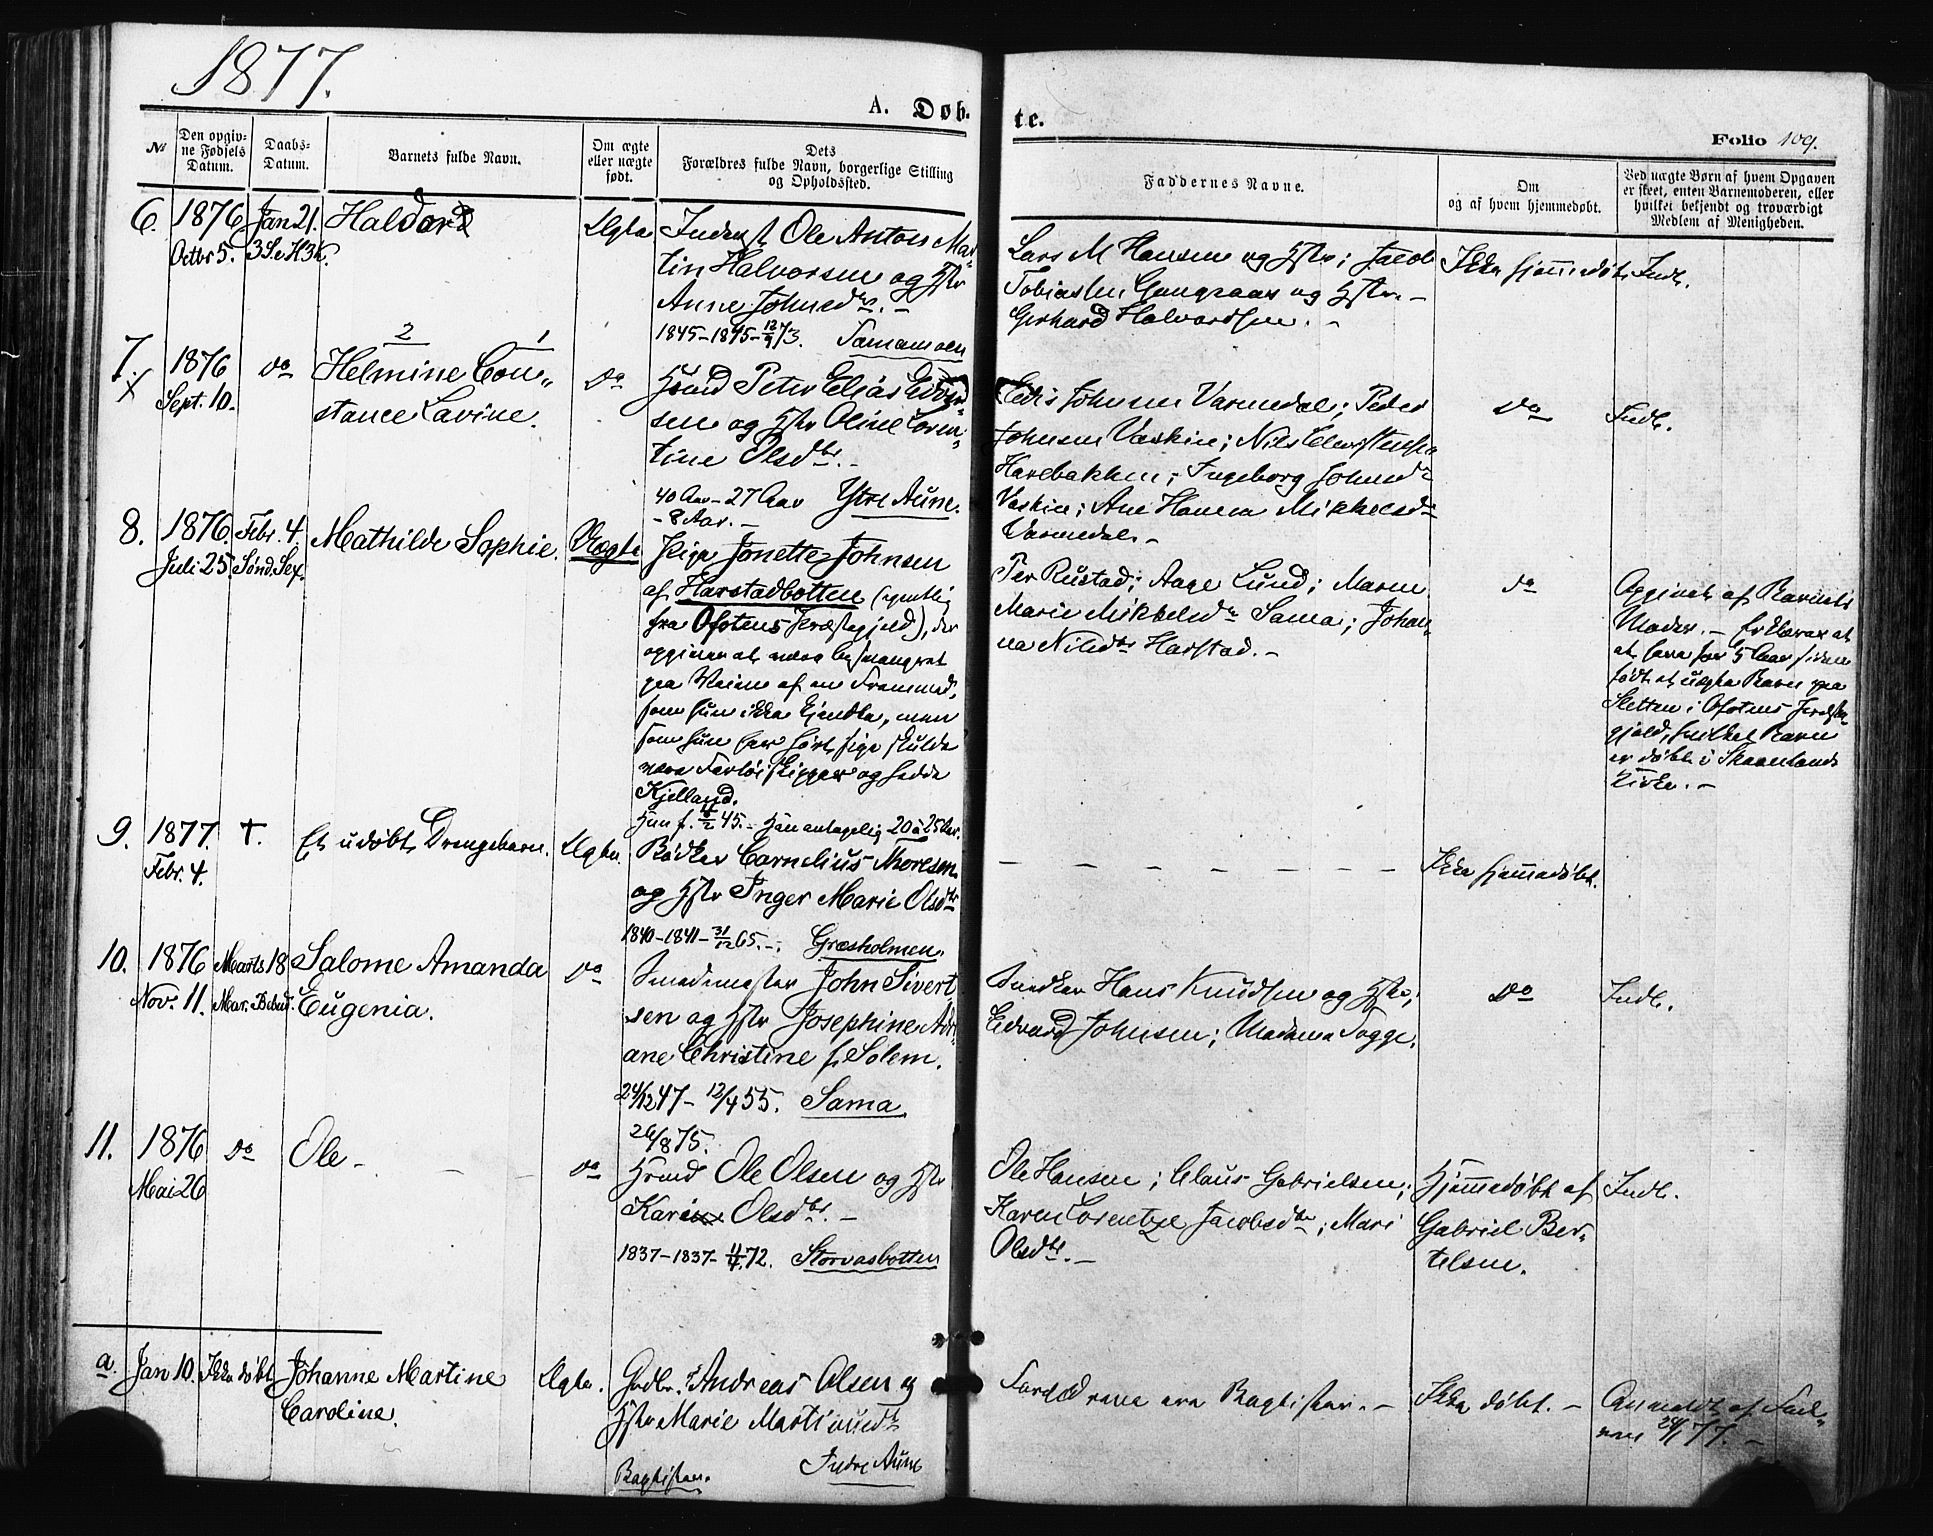 1877.
A. Døb-
te.
Folio 109.
№
Den opgiv-
ne Fødsels
Datum.
Daabs-
Datum.
Barnets fulde Navn.
Om ægte
eller uægte
født.
Dets
Forældres fulde Navn, borgerlige Stilling
og Opholdssted.
Faddernes Navne.
Om
og af hvem hjemmedøbt.
Ved uægte Børn af hvem Opgaven
er skeet, enten Barnemoderen, eller
hvilket bekjendt og troværdigt
Medlem af Menigheden.
6.
1876
Octbr 5.
Jan 21.
3 S. e H3K.
Halvard
Ægte
Inderst Ole Anton Mar-
tin Halvorsen og Hstr
Anne Johnsdtr. -
1845-1845-12/9 73.
Lars M Hansen og Hstr; Jacob
Tobiassen Gangsaas og Hstr. -
Gerhard Halvardsen. -
Ikke hjemmedøbt
Indb.
7.
X
1876
Sept. 10.
do
2 1
Helmine Con-
stance Lavine.
do
Hsmd Peter Elias Edvard-
sen og Hstr Oline Loren-
tine Olsdtr. -
40 Aar - 27 Aar Ytre Aune.
- 8 Aar. -
Edis Johnsen Varmedal; Peder
Johnsen Vaskin;
Ingeborg Johnsd-
Vaskin; Ane Hanna Mikkelsd-
Varmedal. -
do
Indb.
8.
1876.
Juli 25.
Febr. 4.
Sønd. Sex.
Mathilde Sophie.
Uægte
Pige Jonette Johnsen
af Harstadbotten (egentlig
fra Ofotens Præstegjeld), der
opgiver at være besvangret
paa Veien af en Fremmed,
som hun ikke kjendte, men
som hun har hørt sige skulde
være Fartøiskipper og hedde
Kjelland.
Hun f. 4/2 45. - Han antagelig 20 à 25 Aar.
Per Rustad; Aage Lund; Maren
Marie Mikkelsdtr Sama; Johan-
na Nilsdtr Harstad. -
do
Opgivet af Barnets
Moder. - Erklærer at
at have for 5 Aar siden
født et uægte Barn paa
Sletten i Ofotens Præste-
gjeld, hvilket Barn
er døbt i Skaanlands
Kirke. -
9.
1877.
Febr. 4.
†.
Et udøbt Drengebarn.
Ægte.
Bødker Cornelius Moresen
og Hstr Inger Marie Olsdtr
1840-1841-31/12 65. -. Græsholmen.
- - - - - - -
Ikke hjemmedøbt.
10.
1876
Nov. 11.
Marts 18
Mar. Bebud.
Salome Amanda
Eugenia.
do
Smedemester John Sivert
sen og Hstr Josephine Adri-
ane Christine f. Solem.
24/12 47 - 12/4 55. Sama
26/8 75.
Snedker Hans Knudsen og Hstr;
Edvard Johnsen; Madame Fogge.
do
Indb.
11.
1876
Mai 26
do
Ole - - -
do
Hsmd Ole Olsen og Hstr
Karen Olsdtr. -
1837-1837-4/4 72. Storvasbotten
Ole Hansen; Claus Gabrielsen;
Karen Lorentze Jacobsdtr; Mari
Olsdtr. -
Hjemmedøbt af
Gabriel Ber-
telsen.
Indb.
a.
Jan 10.
Ikke døbt
Johanne Martine
Caroline.
Ægte.
Grdbr. Andreas Olsen og
Hstr Marie Martinusdtr
Baptister. Indre Aune
Forældrene ere Baptister. -
Ikke døbt. -
Anmeldt af Fad-
eren 24/1 77. -